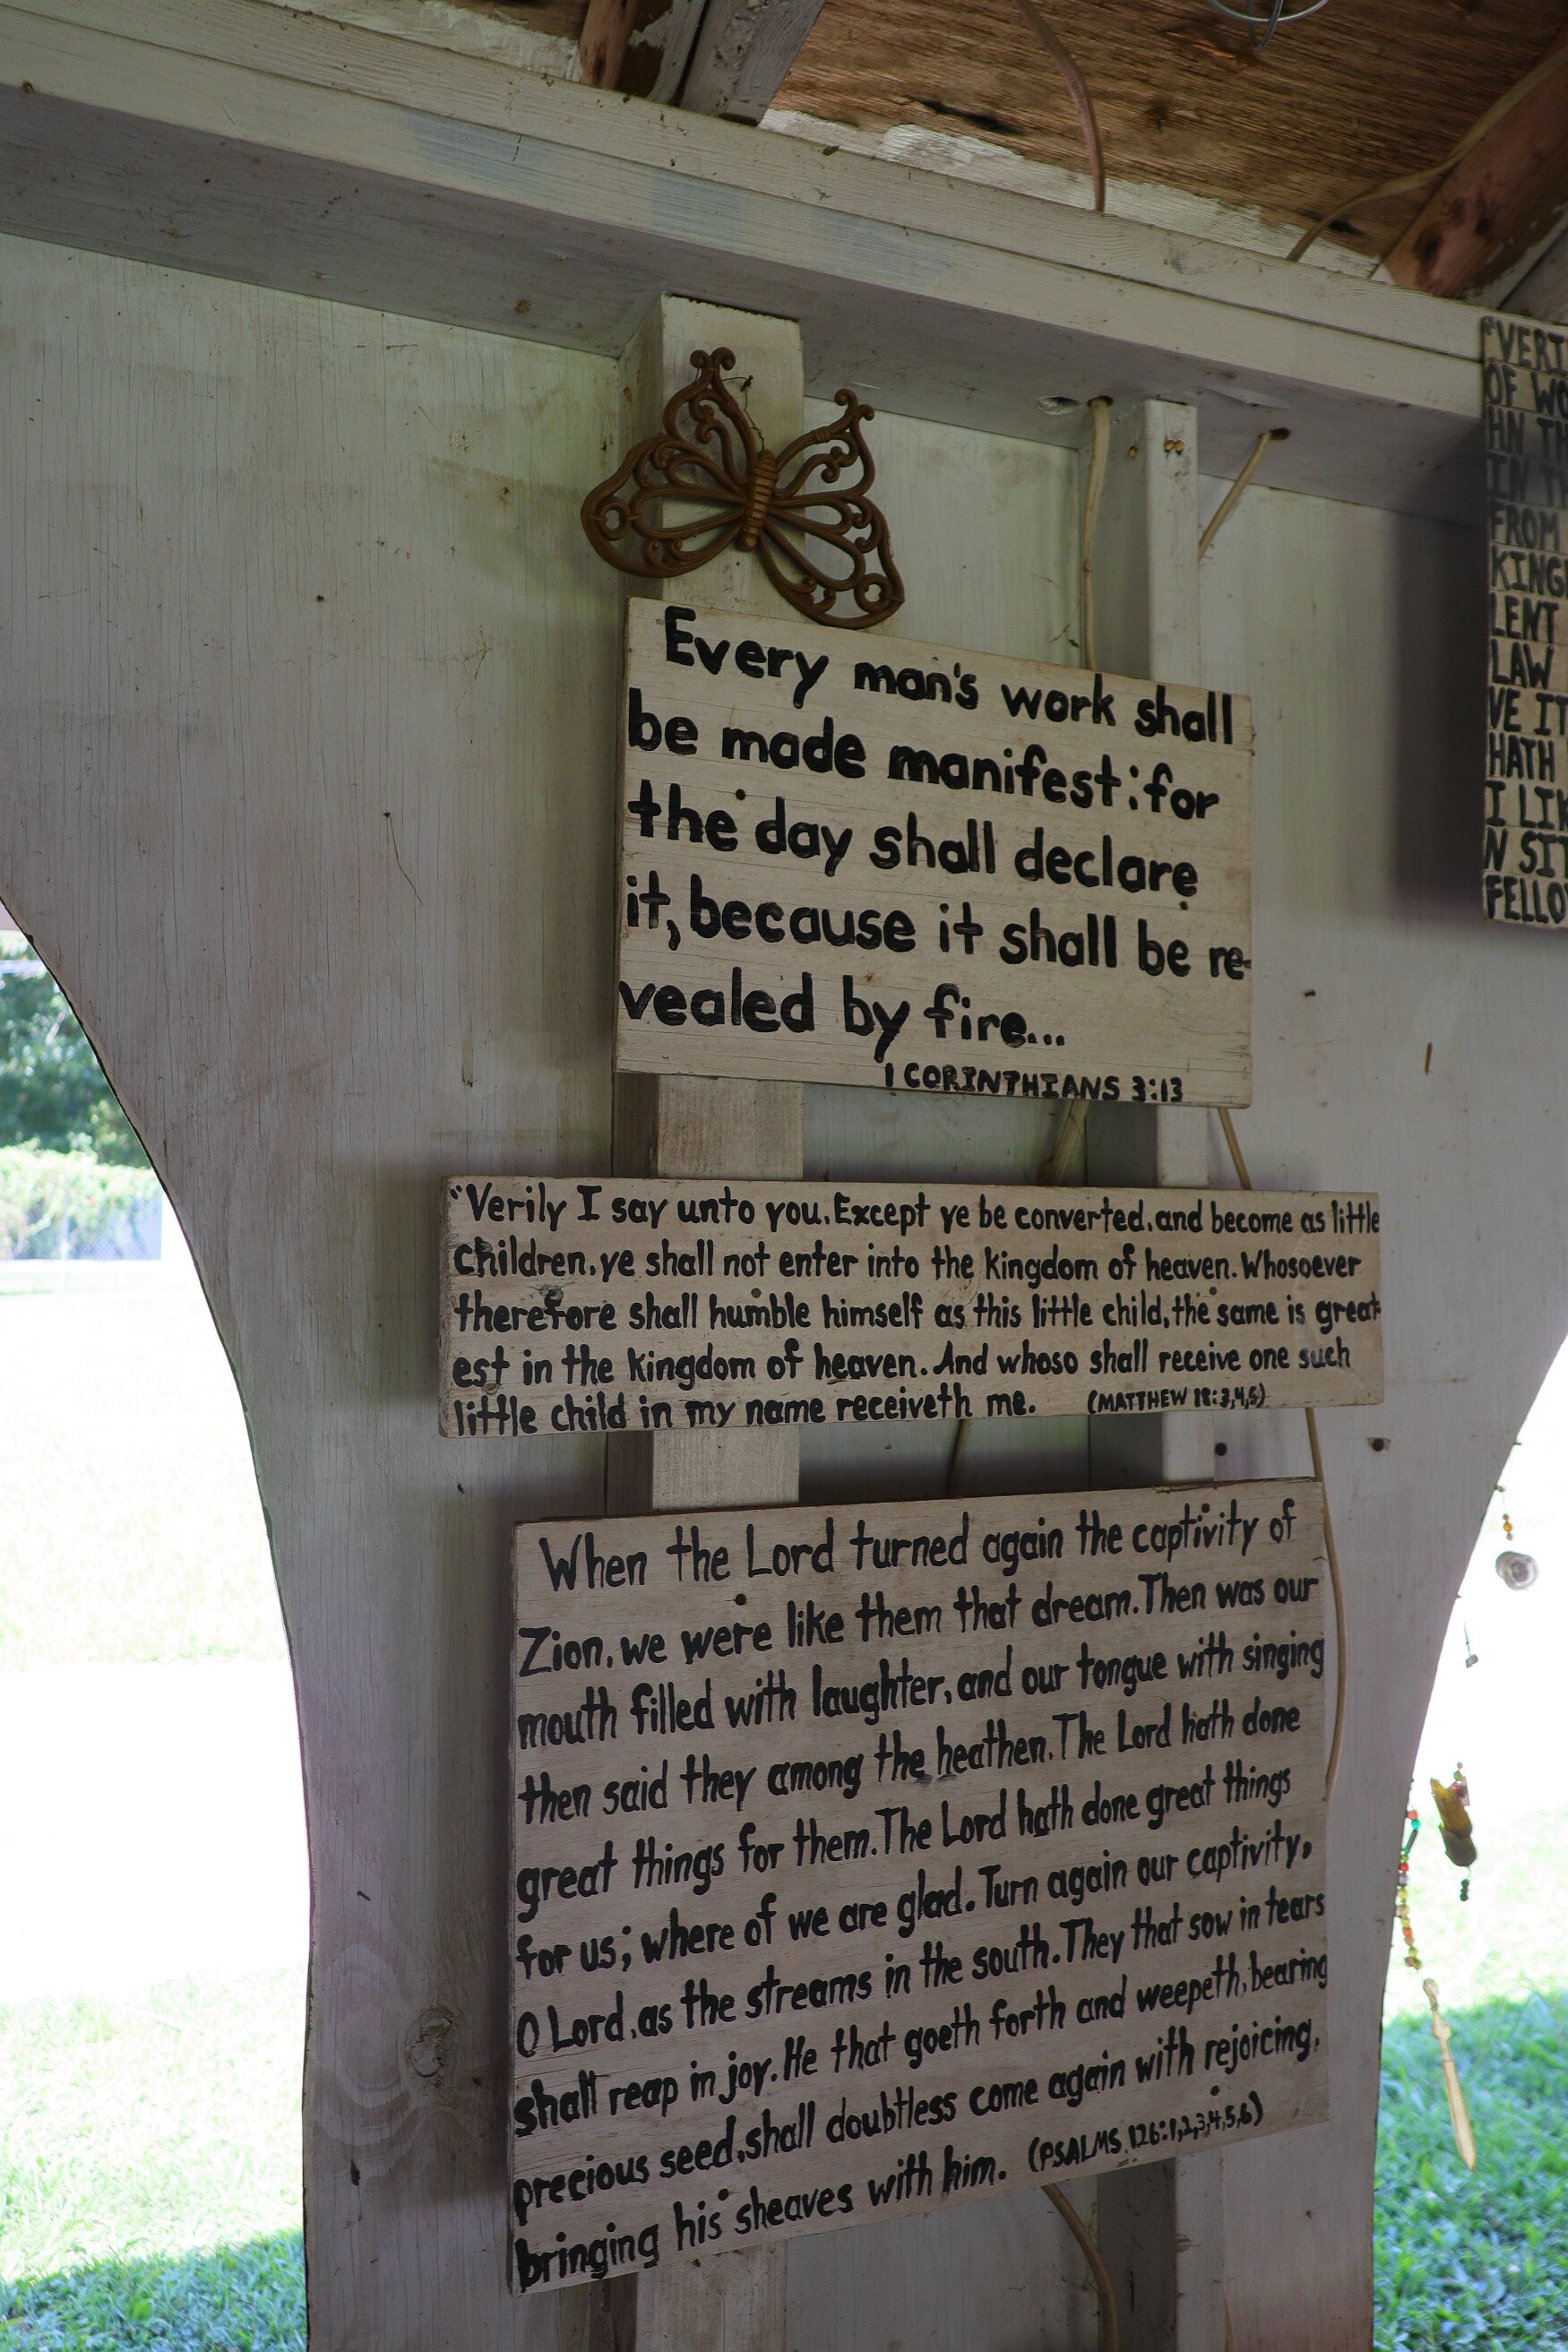 Every man's work shall
be made manifest: for
the day shall declare
it, because it shall be re-
vealed by fire...
1 CORINTHIANS 3:13
"Verily I say unto you. Except ye be converted, and become as little
children, ye shall not enter into the kingdom of heaven. Whosoever
therefore shall humble himself as this little child, the same is great-
est in the kingdom of heaven. And whoso shall receive one such
little child in my name receiveth me. (MATTHEW 18:3,4,5)
When the Lord turned again the captivity of
Zion, we were like them that dream. Then was our
mouth filled with laughter, and our tongue with singing
then said they among the heathen. The Lord hath done
great things for them. The Lord hath done great things
for us; where of we are glad. Turn again our captivity,
O Lord, as the streams in the south. They that sow in tears
shall reap in joy. He that goeth forth and weepeth, bearing
precious seed, shall doubtless come again with rejoicing,
bringing his sheaves with him. (PSALMS 126:1,2,3,4,5,6)
"VERI
OF WO
HN TH
IN TH
FROM
KING
LENT
LAW
VE IT
HATH
I LIK
N SIT
FELLO